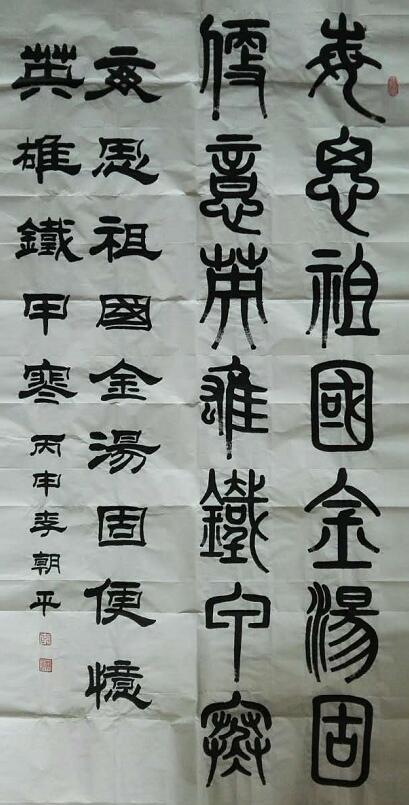 每思祖國金湯固
便意英雄鐵甲寒
每思祖國金湯固便憶
英雄鐵甲寒丙申李朝平